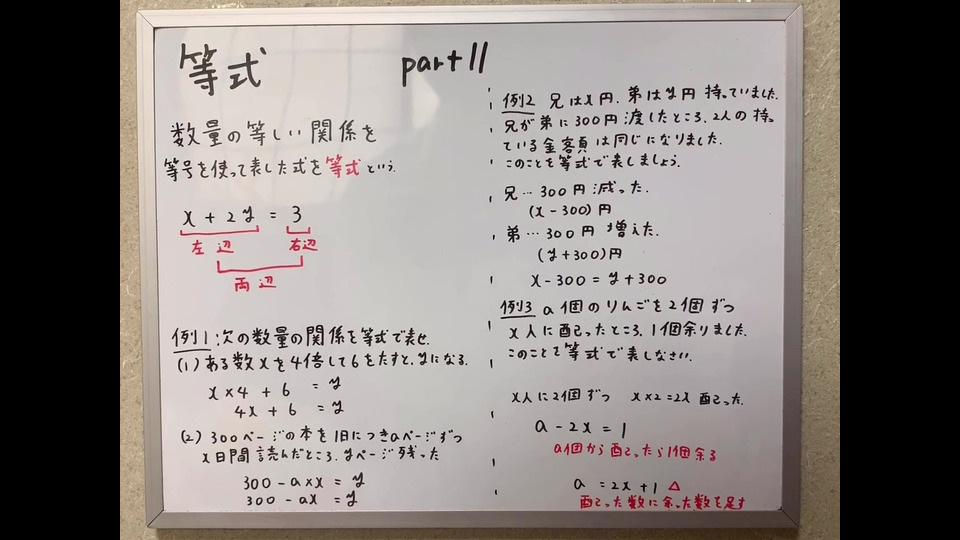 等式 part11
数量の等しい関係を
等号を使って表した式を等式という.
x + 2y = 3
左辺 右辺
両辺
例1:次の数量の関係を等式で表せ.
(1) ある数xを4倍して6をたすと、yになる.
x×4 + 6 = y
4x + 6 = y
(2) 300ページの本を1日につきaページずつ
x日間読んだところ、yページ残った
300-a×x = y
300-ax = y
例2 兄はx円、弟はy円持っていました.
兄が弟に300円渡したところ、2人の持っ
ている金額は同じになりました.
このことを等式で表しましょう.
兄…300円減った.
(x-300)円
弟…300円増えた.
(y+300)円
x-300 = y+300
例3 a個のりんごを2個ずつ
x人に配ったところ、1個余りました.
このことを等式で表しなさい.
x人に2個ずつ x×2=2x 配った.
a-2x = 1
a個から配ったら1個余る
a = 2x+1 △
配った数に余った数を足す